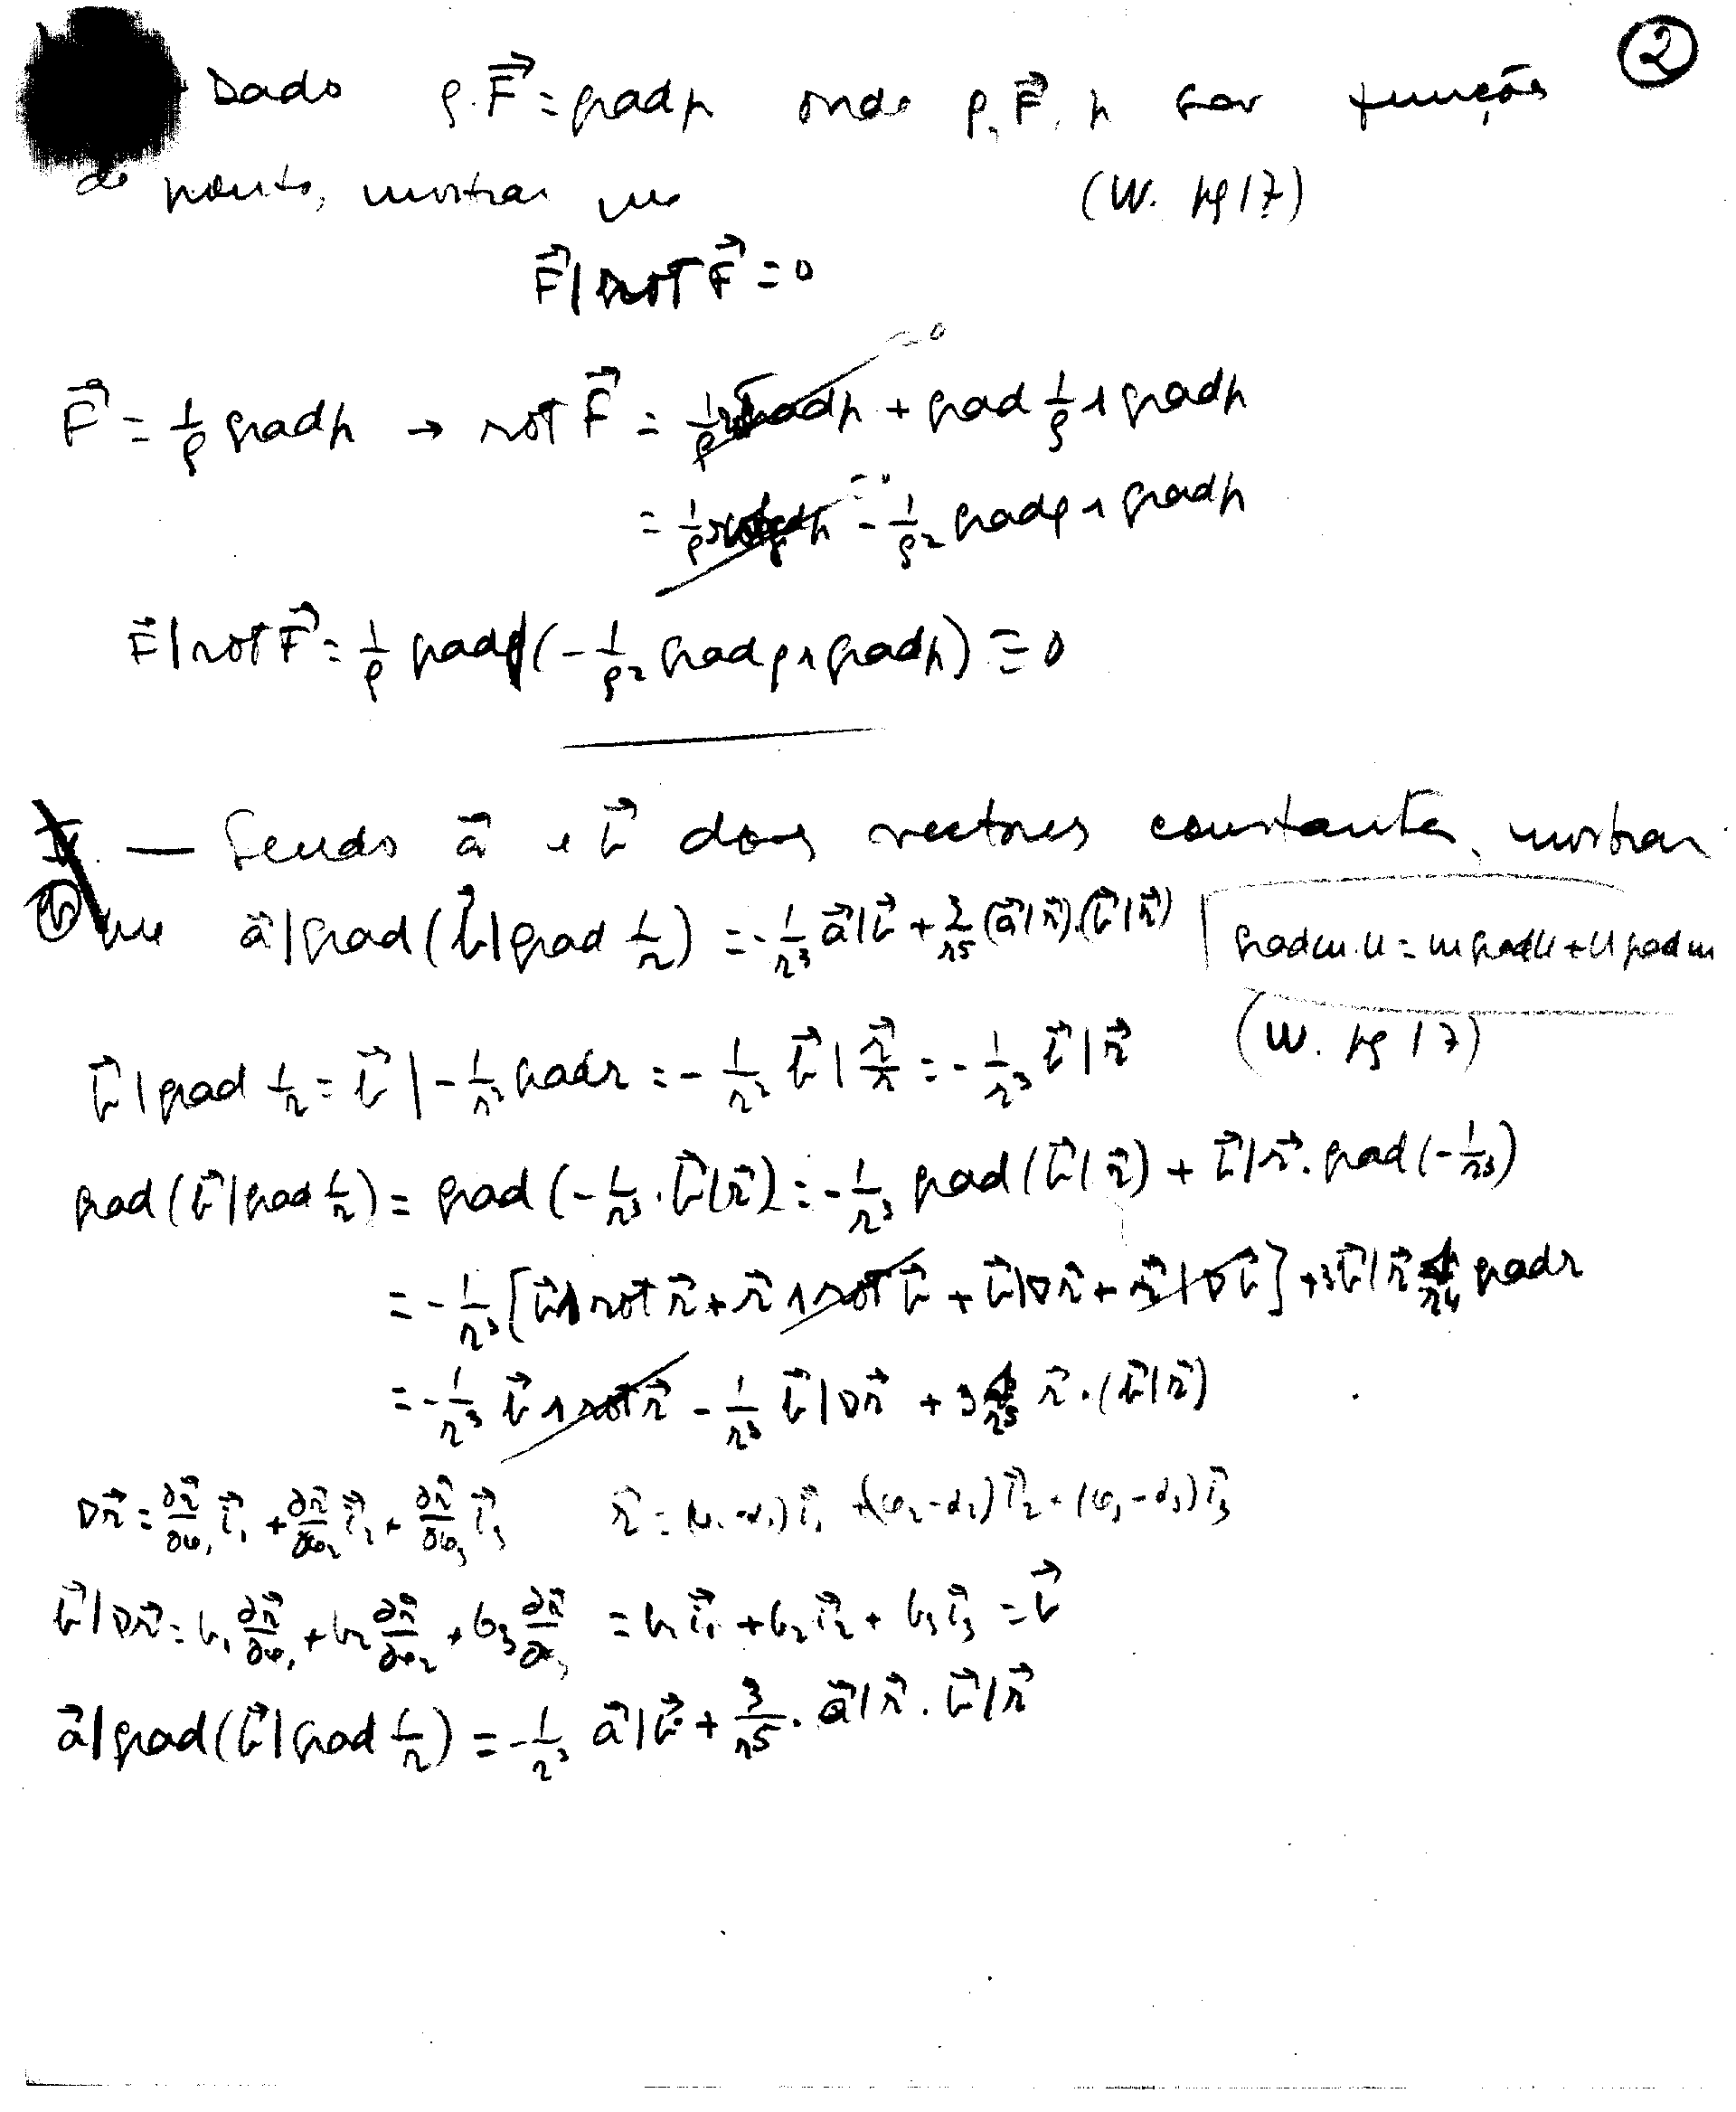 ②
Dado ρ.F⃗ = grad p onde ρ, F⃗, p são funções
de ponto, mostrar que (W. pg 17)
F⃗ | rot F⃗ = 0
F⃗ = 1/ρ grad p → rot F⃗ = 1/ρ rot grad p + grad 1/ρ ∧ grad p
= 0
= 1/ρ rot grad p - 1/ρ² grad ρ ∧ grad p
F⃗ | rot F⃗ = 1/ρ grad p | (- 1/ρ² grad ρ ∧ grad p) ≡ 0
— Sendo a⃗ e b⃗ dous vectores constantes, mostrar
que a⃗ | grad (b⃗ | grad 1/r) = - 1/r³ a⃗ | b⃗ + 3/r⁵ (a⃗ | r⃗).(b⃗ | r⃗)
grad m.u = m grad u + u grad m
(W. pg 17)
b⃗ | grad 1/r = b⃗ | - 1/r² grad r = - 1/r² b⃗ | r⃗/r = - 1/r³ b⃗ | r⃗
grad (b⃗ | grad 1/r) = grad (- 1/r³ . b⃗ | r⃗) = - 1/r³ grad (b⃗ | r⃗) + b⃗ | r⃗ . grad (- 1/r³)
= - 1/r³ [b⃗ ∧ rot r⃗ + r⃗ ∧ rot b⃗ + b⃗ | ∇r⃗ + r⃗ | ∇b⃗] + 3 b⃗ | r⃗ 1/r⁴ grad r
= - 1/r³ b⃗ ∧ rot r⃗ - 1/r³ b⃗ | ∇r⃗ + 3 1/r⁵ r⃗ . (b⃗ | r⃗)
∇r⃗ = ∂r⃗/∂φ₁ i⃗₁ + ∂r⃗/∂φ₂ i⃗₂ + ∂r⃗/∂φ₃ i⃗₃ r⃗ = (φ₁ - α₁) i⃗₁ + (φ₂ - α₂) i⃗₂ + (φ₃ - α₃) i⃗₃
b⃗ | ∇r⃗ = b₁ ∂r⃗/∂φ₁ + b₂ ∂r⃗/∂φ₂ + b₃ ∂r⃗/∂φ₃ = b₁ i⃗₁ + b₂ i⃗₂ + b₃ i⃗₃ = b⃗
a⃗ | grad (b⃗ | grad 1/r) = - 1/r³ a⃗ | b⃗ + 3/r⁵ . a⃗ | r⃗ . b⃗ | r⃗